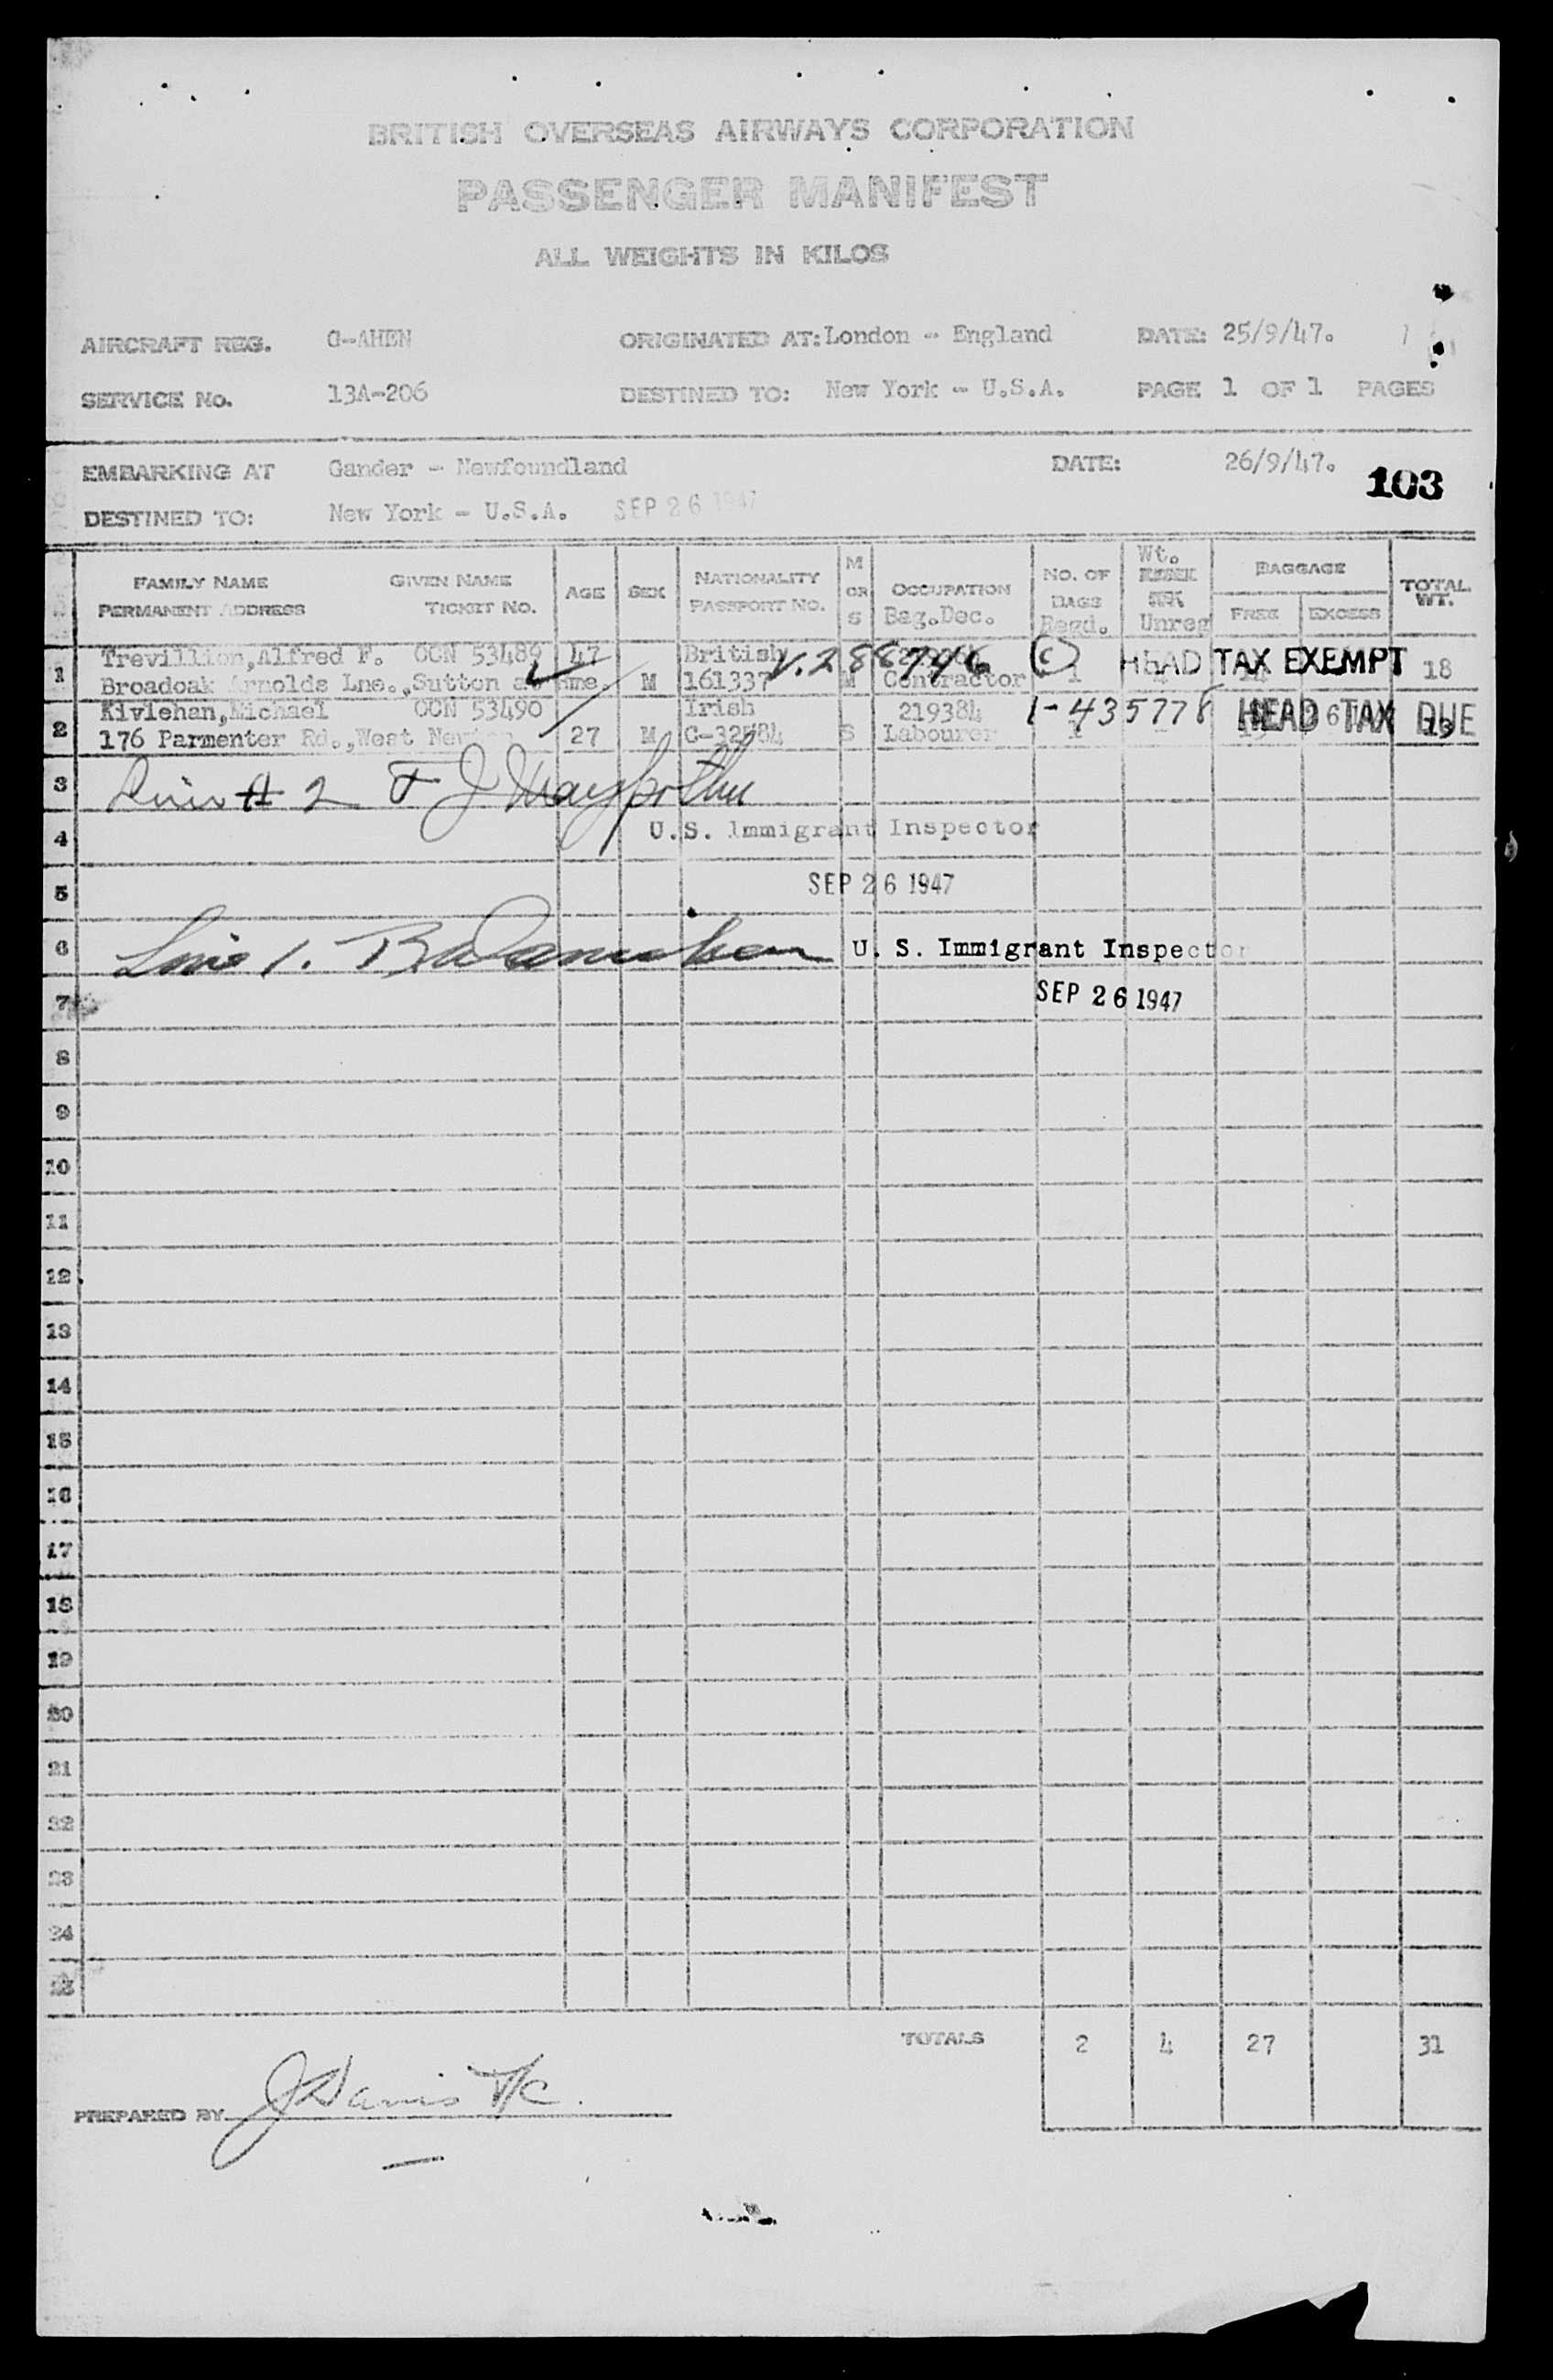 BRITISH OVERSEAS AIRWAYS CORPORATION
PASSENGER MANIFEST
ALL WEIGHTS IN KILOS
AIRCRAFT REG. G-AHEN ORIGINATED AT: London - England DATE: 25/9/47.
SERVICE No. 13A-206 DESTINED TO: New York - U.S.A. PAGE 1 OF 1 PAGES
EMBARKING AT Gander - Newfoundland DATE: 26/9/47.
103
DESTINED TO: New York - U.S.A. SEP 26 1947
FAMILY NAME GIVEN NAME AGE SEX NATIONALITY M OR S OCCUPATION NO. OF BAGS Wt. BAGGAGE TOTAL WT.
PERMANENT ADDRESS TICKET NO. PASSPORT NO. Bag.Dec. Regd. Unreg FREE EXCESS
1 Trevillion,Alfred F. OCN 53489 47 British V.288746 (C) HEAD TAX EXEMPT
Broadoak Arnolds Lne.,Sutton at Hme. M 161337 M Contractor 1 18
2 Kivlehan,Michael OCN 53490 Irish 219384 1-435778 HEAD TAX DUE
176 Parmenter Rd.,West 27 M S Labourer 1 13
3 Line # 2 F J
4 U.S. Immigrant Inspector
5 SEP 26 1947
6 Line 1. U. S. Immigrant Inspector
7 SEP 26 1947
8
9
10
11
12
13
14
15
16
17
18
19
20
21
22
23
24
25
TOTALS 2 4 27 31
PREPARED BY J Davis T/C.